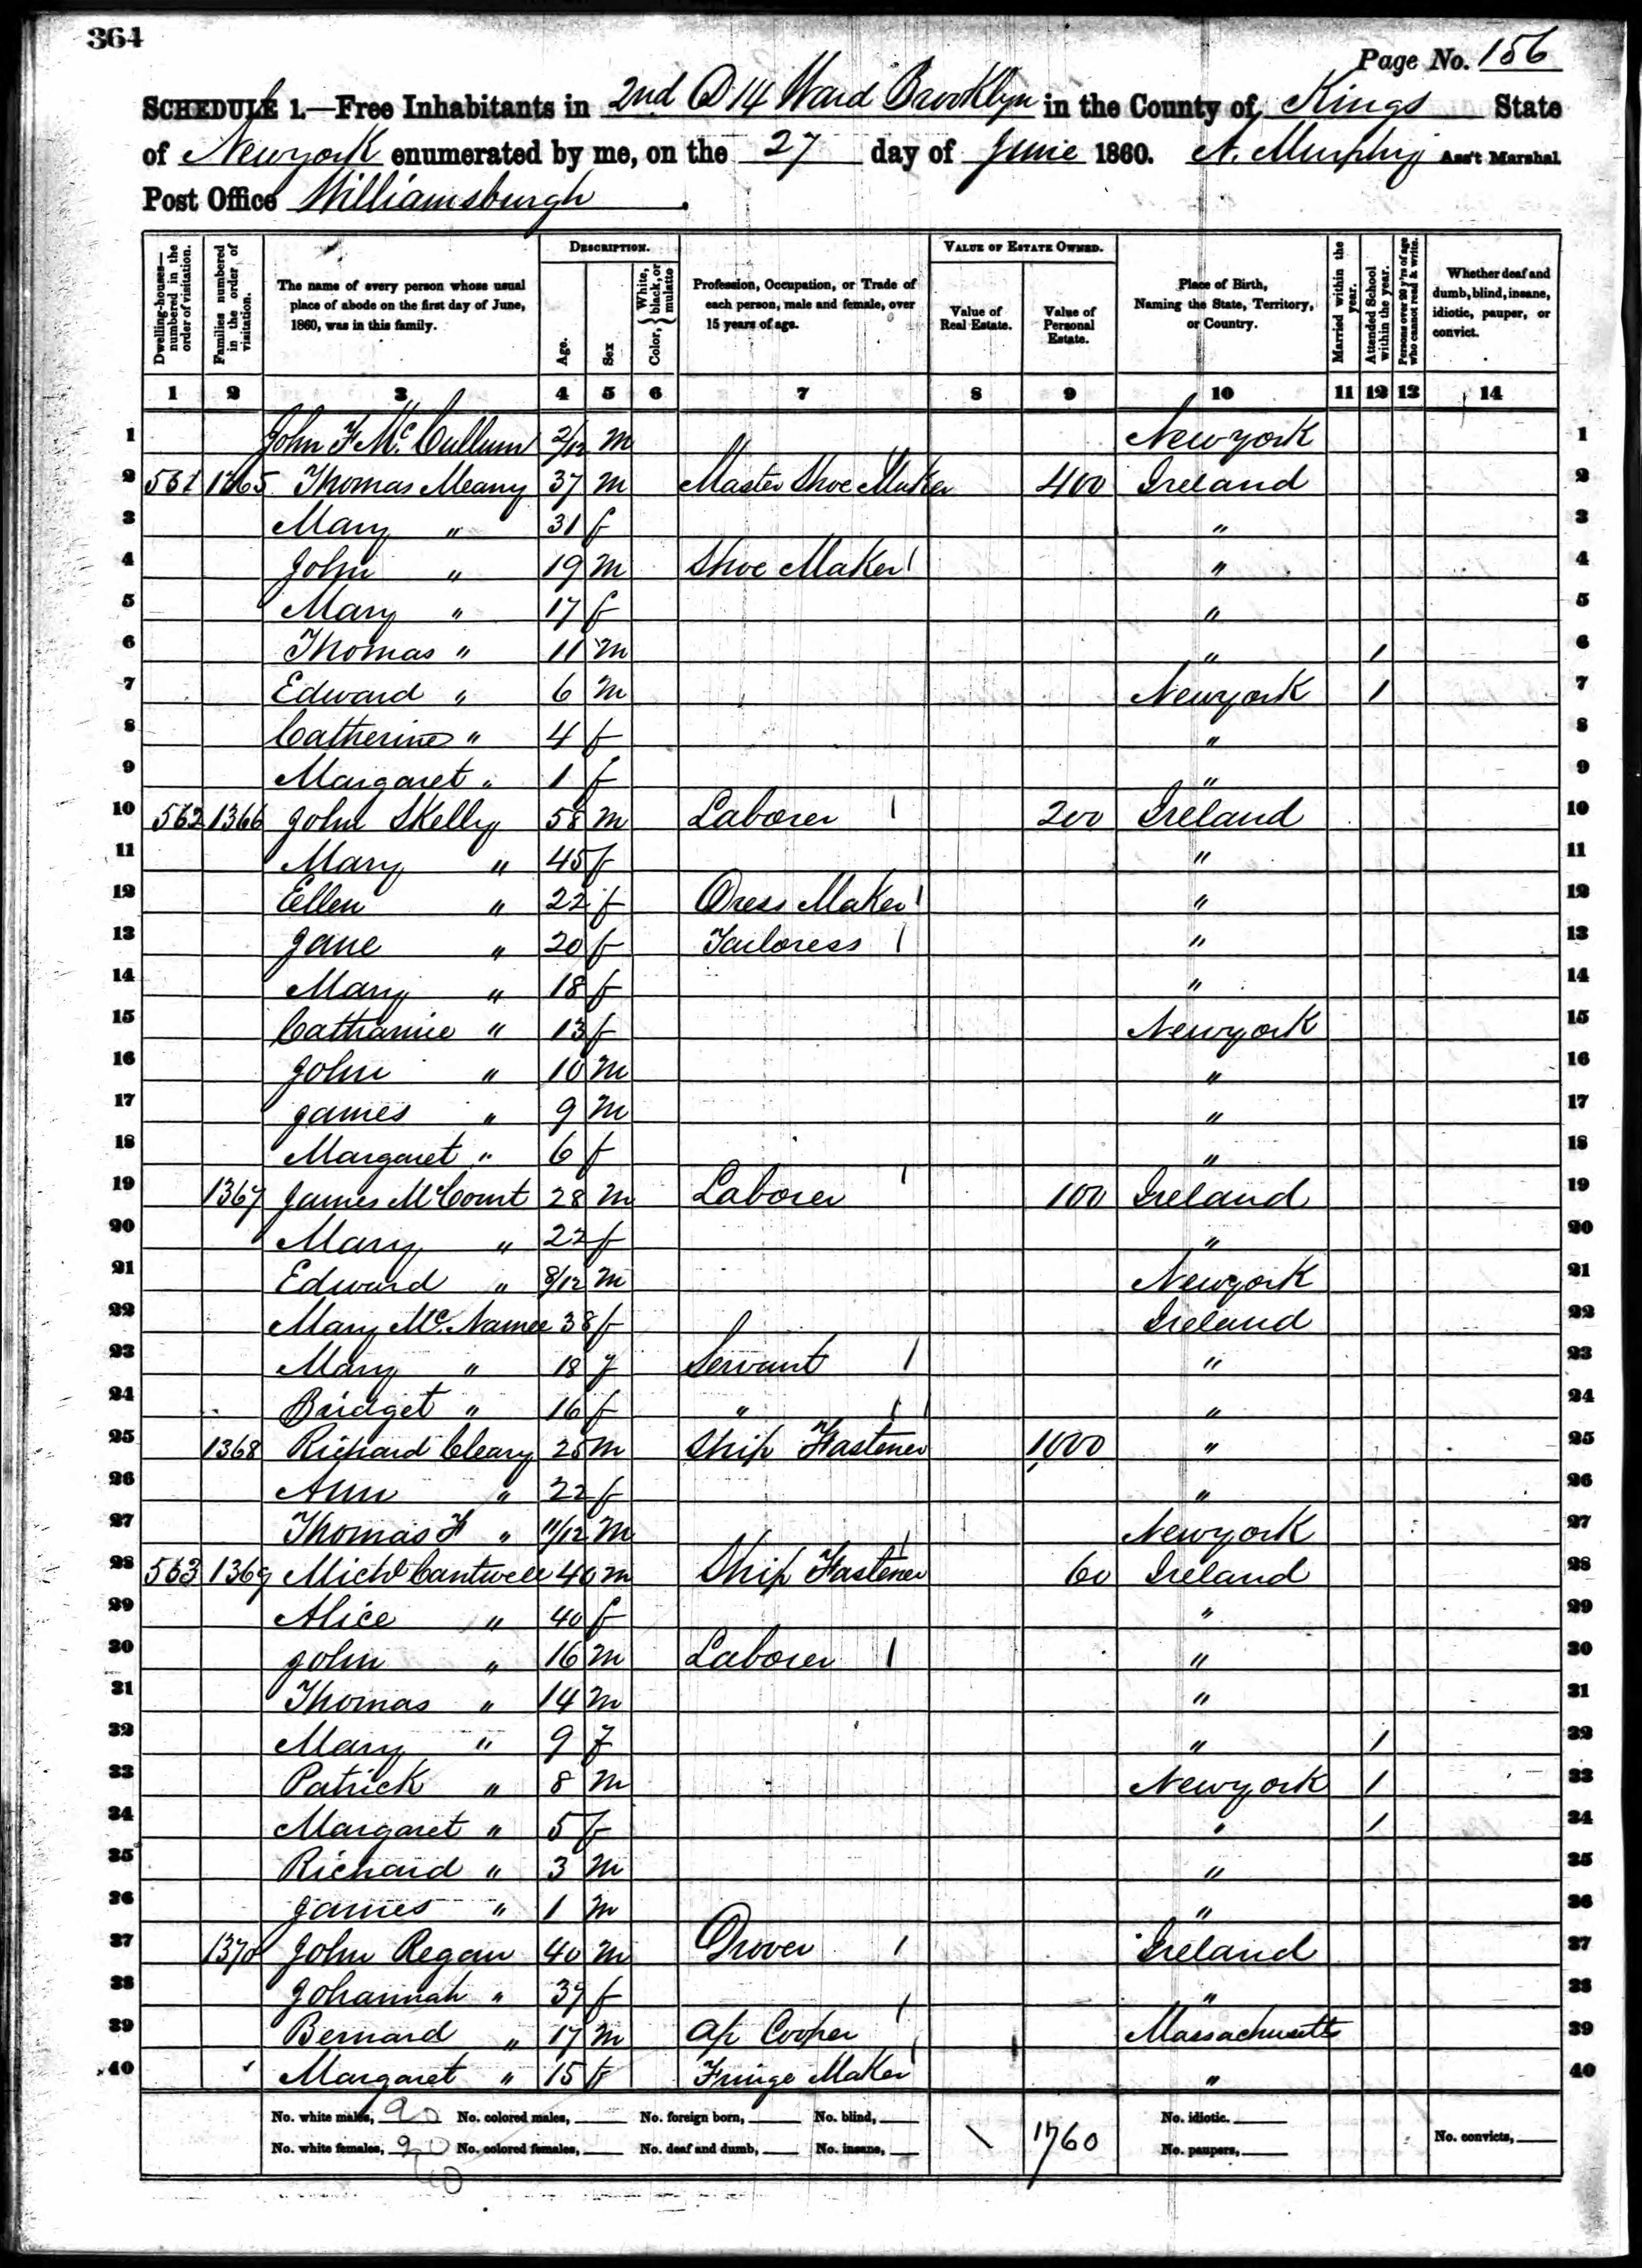 364
Page No. 156
SCHEDULE 1.—Free Inhabitants in 2nd D 14 Ward Brooklyn in the County of Kings State
of Newyork enumerated by me, on the 27 day of June 1860. A. Murphy Ass't Marshal
Post Office Williamsburgh.
Dwelling-houses—numbered in the order of visitation.
Families numbered in the order of visitation.
The name of every person whose usual place of abode on the first day of June, 1860, was in this family.
DESCRIPTION.
Age.
Sex
Color, { White, black, or mulatto
Profession, Occupation, or Trade of each person, male and female, over 15 years of age.
VALUE OF ESTATE OWNED.
Value of Real Estate.
Value of Personal Estate.
Place of Birth, Naming the State, Territory, or Country.
Married within the year.
Attended School within the year.
Persons over 20 y'rs of age who cannot read & write.
Whether deaf and dumb, blind, insane, idiotic, pauper, or convict.
1 2 3 4 5 6 7 8 9 10 11 12 13 14
1 John F Mc. Cullum 2/12 m Newyork 1
2 561 1365 Thomas Meany 37 m Master Shoe Maker 400 Ireland 2
3 Mary " 31 f " 3
4 John " 19 m Shoe Maker / " 4
5 Mary " 17 f " 5
6 Thomas " 11 m " / 6
7 Edward " 6 m Newyork / 7
8 Catherine " 4 f " 8
9 Margaret " 1 f " 9
10 562 1366 John Skelly 58 m Laborer / 200 Ireland 10
11 Mary " 45 f " 11
12 Ellen " 22 f Dress Maker / " 12
13 Jane " 20 f Tailoress / " 13
14 Mary " 18 f " 14
15 Catharine " 13 f Newyork 15
16 John " 10 m " 16
17 James " 9 m " 17
18 Margaret " 6 f " 18
19 1367 James McCourt 28 m Laborer / 100 Ireland 19
20 Mary " 22 f " 20
21 Edward " 8/12 m Newyork 21
22 Mary Mc. Namee 38 f Ireland 22
23 Mary " 18 f Servant / " 23
24 Bridget " 16 f " / " 24
25 1368 Richard Cleary 25 m Ship Fastener 1000 " 25
26 Ann " 22 f " 26
27 Thomas F " 11/12 m Newyork 27
28 563 1369 Michl Cantwell 40 m Ship Fastener 60 Ireland 28
29 Alice " 40 f " 29
30 John " 16 m Laborer / " 30
31 Thomas " 14 m " 31
32 Mary " 9 f " / 32
33 Patrick " 8 m Newyork / 33
34 Margaret " 5 f " / 34
35 Richard " 3 m " 35
36 James " 1 m " 36
37 1370 John Regan 40 m Drover / Ireland 37
38 Johannah " 37 f " 38
39 Bernard " 17 m Ap Cooper / Massachusetts 39
40 Margaret " 15 f Fringe Maker / " 40
No. white males, 20 No. colored males, No. foreign born, No. blind, No. idiotic.
No. white females, 20 No. colored females, No. deaf and dumb, No. insane, \ 1760 No. paupers, No. convicts,
40